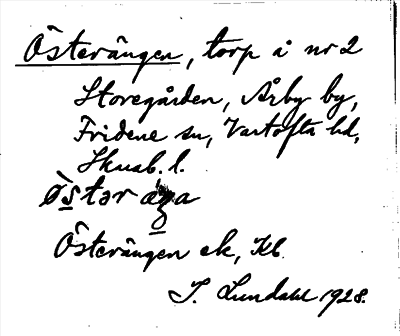 Österängen, torp å nr 2
Storegården, Årby by,
Fridene sn, Vartofta hd,
Skarab. l.
östar äŋa
Österängen ek, Kb.
I. Lundahl 1928.